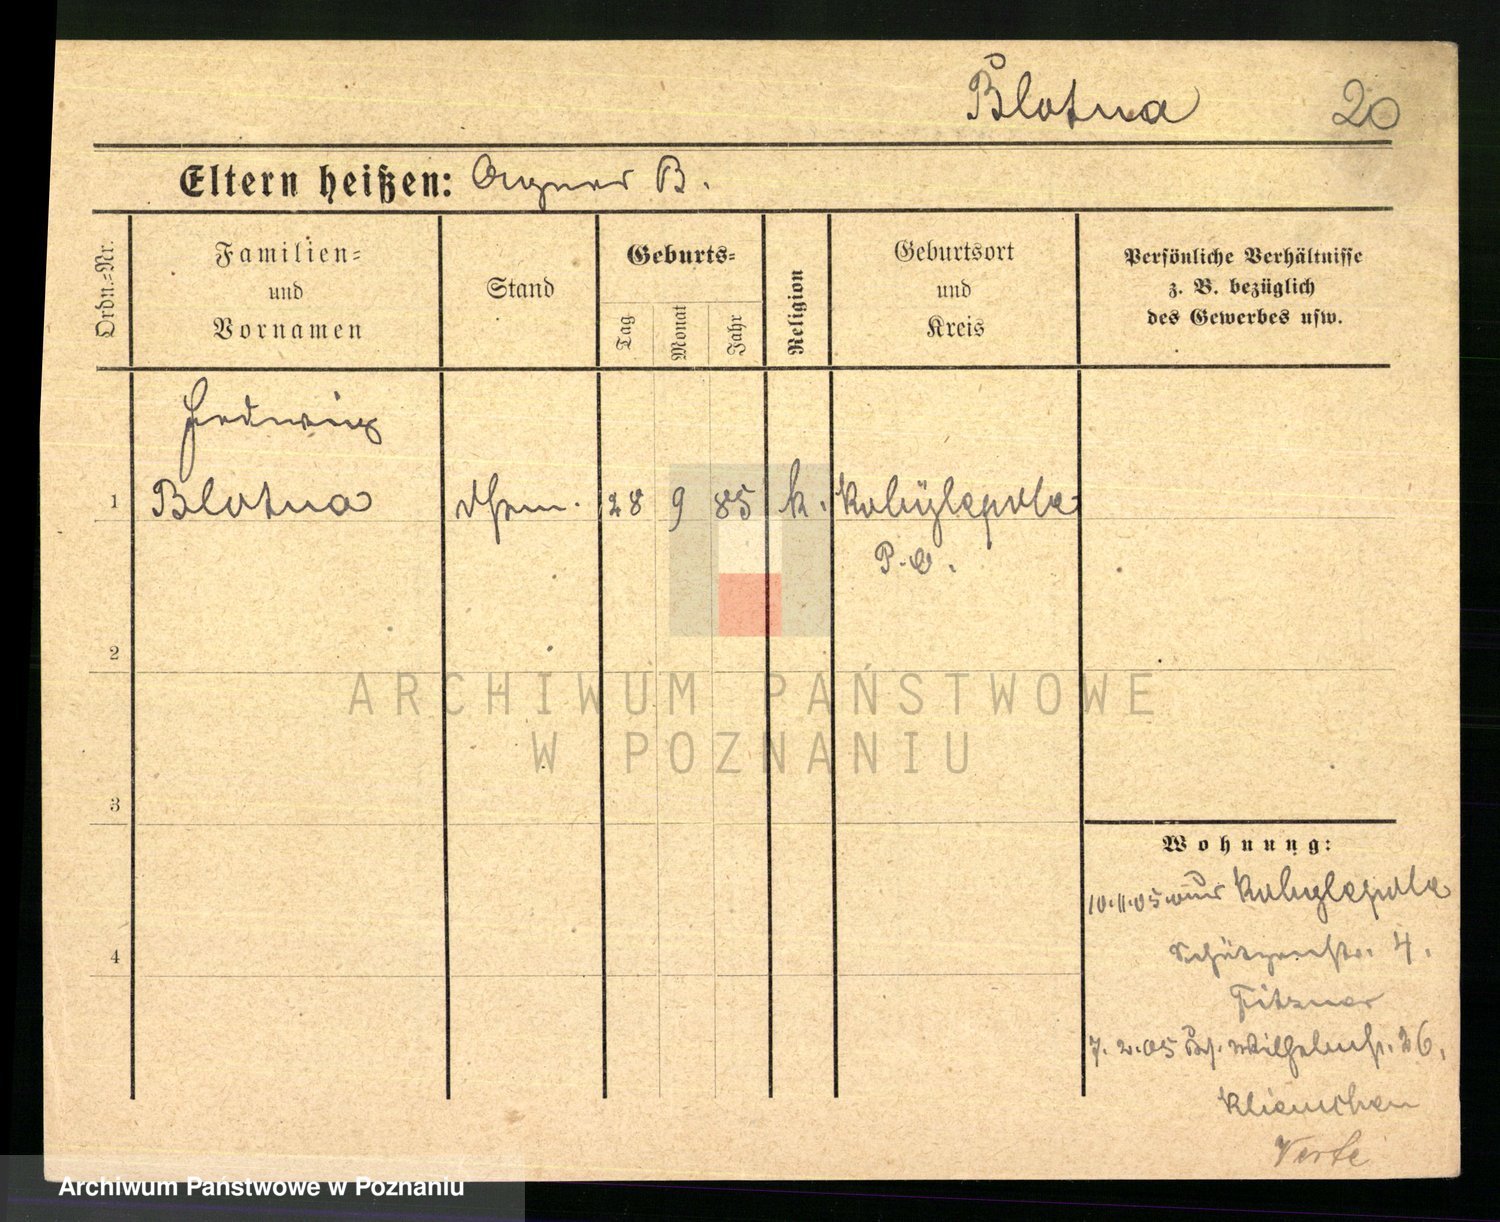 Blotna 20
Eltern heißen: Agnes B.
Ordn.-Nr.
Familien-
und
Vornamen
Stand
Geburts-
Tag
Monat
Jahr
Religion
Geburtsort
und
Kreis
Persönliche Verhältnisse
z. B. bezüglich
des Gewerbes usw.
Hedwig
1 Blotna 28 9 85 k. Kobylepole
P. O.
2
3
4
Wohnung:
10.11.05 Kobylepole
Schützenstr. 4.
Fitzner
7. 2. 05 Wilhelmstr. 26.
ARCHIWUM PAŃSTWOWE
W POZNANIU
Archiwum Państwowe w Poznaniu